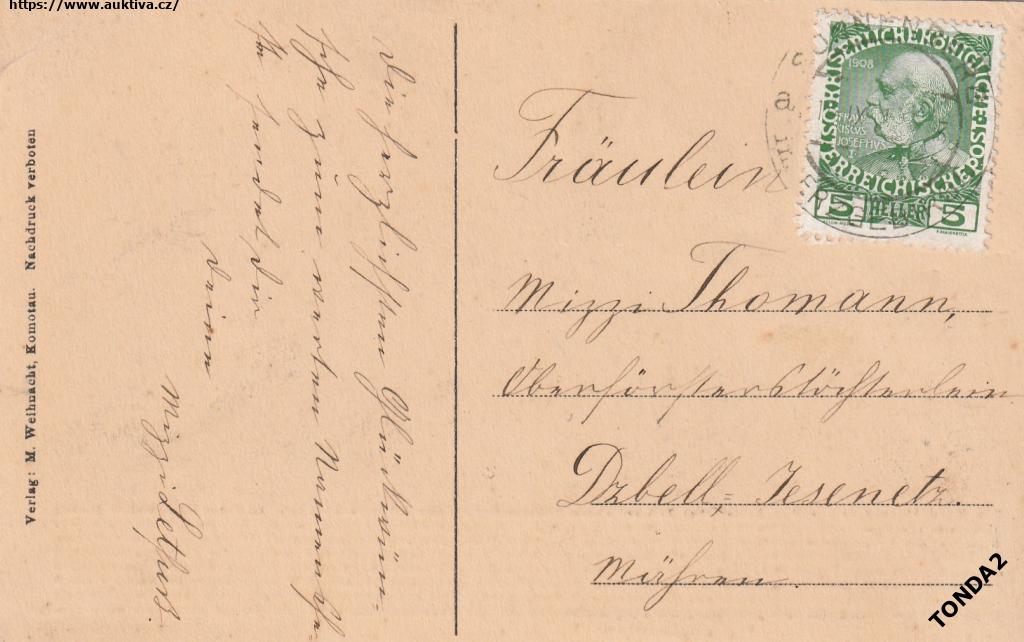 https://www.auktiva.cz/
Die herzlichsten Glückwün-
sche zum werten Namensfe-
ste sendet Dir
Deine
Mizzi
Verlag: M. Weihnacht, Komotau. Nachdruck verboten
1908
ÖSTERREICHISCHE POST
KAISERLICHE KÖNIGLICHE
FRAN
CISCVS
JOSEPHVS
I.
5 HELLER 5
Fräulein
Mizzi Thomann,
Oberförsterstöchterlein
Dzbell-Jesenetz.
Mähren.
TONDA2